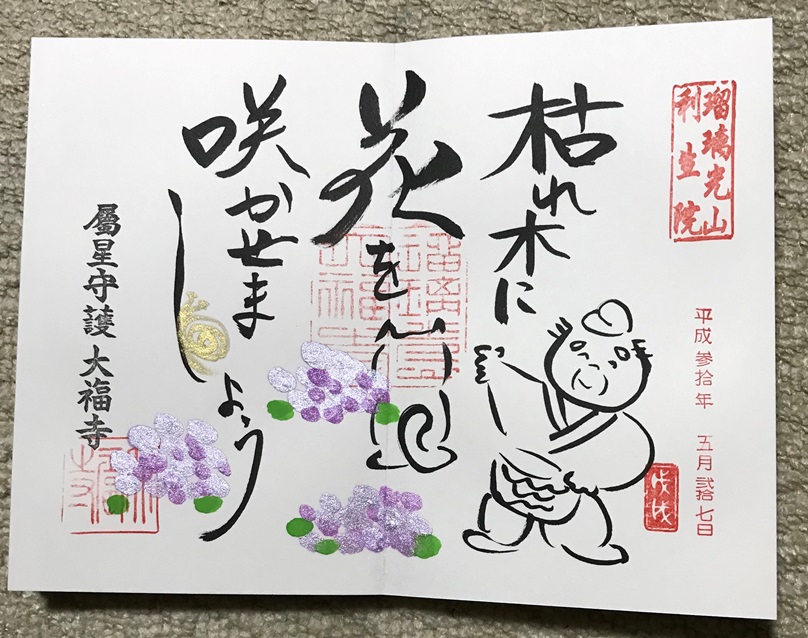 瑠璃光山
利生院
平成参拾年 五月弐拾七日
戊戌
枯れ木に
花を
咲かせま
しょう
屬星守護 大福寺